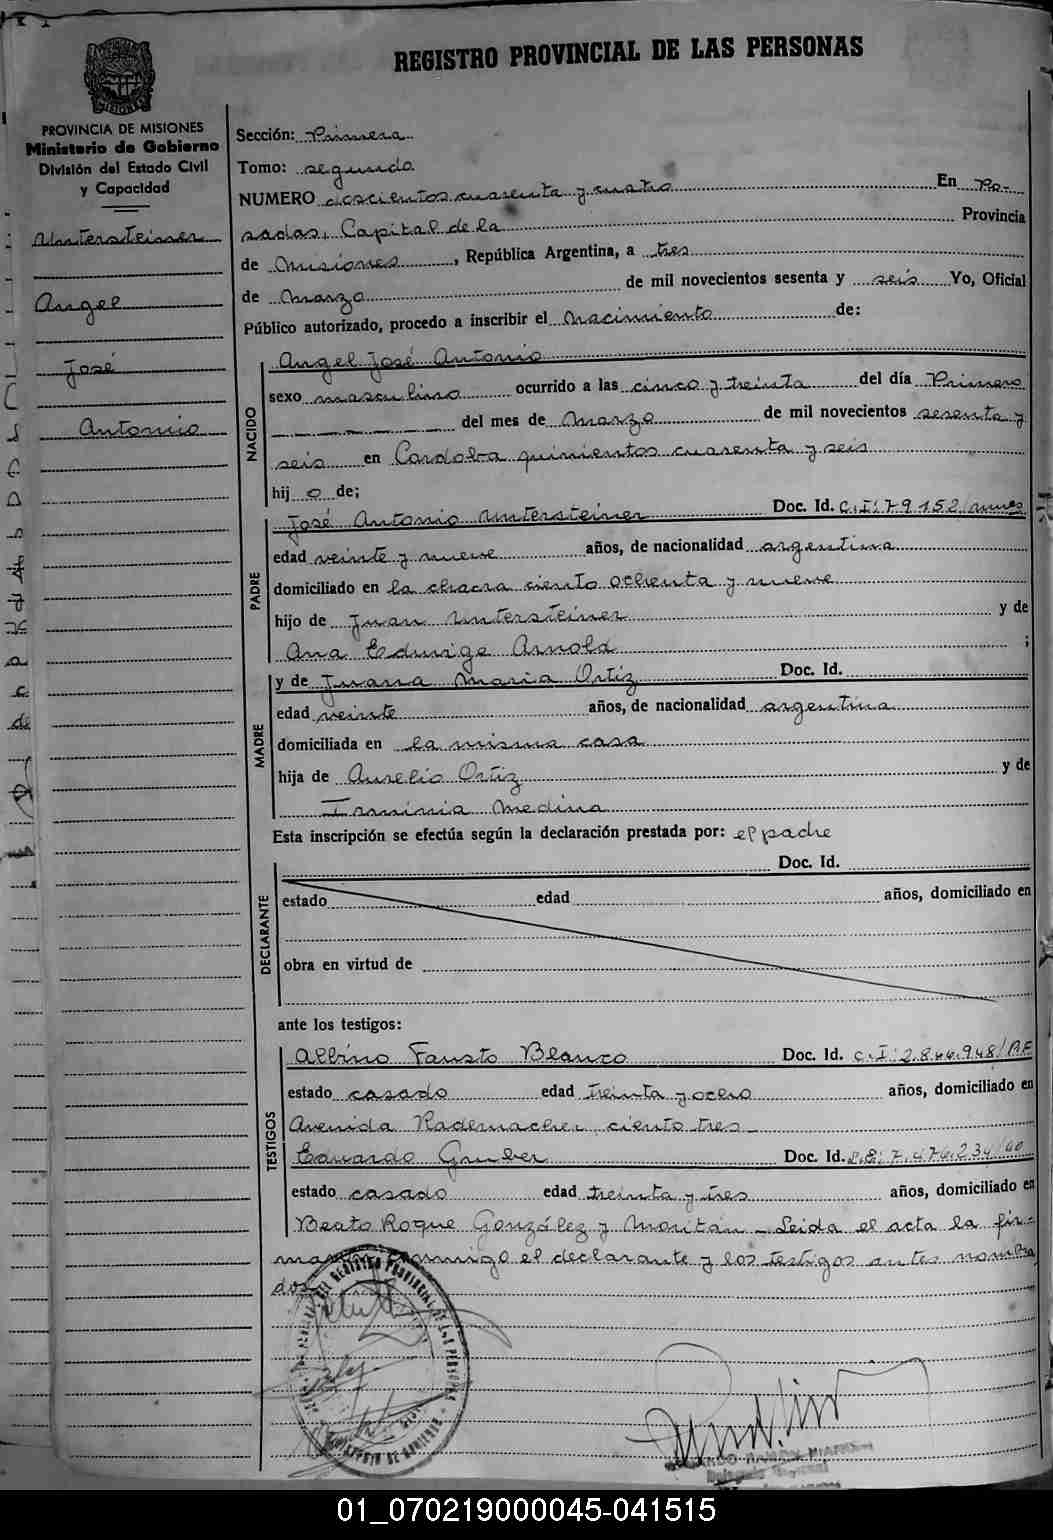 REGISTRO PROVINCIAL DE LAS PERSONAS
PROVINCIA DE MISIONES
Ministerio de Gobierno
División del Estado Civil
y Capacidad
Untersteiner
Angel
José
Antonio
Sección: Primera
Tomo: segundo
NUMERO doscientos cuarenta y cuatro En Po-
sadas, Capital de la Provincia
de Misiones, República Argentina, a tres
de Marzo de mil novecientos sesenta y seis Yo, Oficial
Público autorizado, procedo a inscribir el Nacimiento de:
NACIDO
Angel José Antonio
sexo masculino ocurrido a las cinco y treinta del día Primero
del mes de Marzo de mil novecientos sesenta y
seis en Cordoba quinientos cuarenta y seis
hij o de;
PADRE
José Antonio Untersteiner Doc. Id. C.I: 79152/mnes
edad veinte y nueve años, de nacionalidad argentina
domiciliado en la chacra ciento ochenta y nueve
hijo de Juan Untersteiner y de
Ana Eduvige Arnold ;
MADRE
y de Juana Maria Ortiz Doc. Id.
edad veinte años, de nacionalidad argentina
domiciliada en la misma casa
hija de Aurelio Ortiz y de
Irminia Medina
Esta inscripción se efectúa según la declaración prestada por: el padre
DECLARANTE
Doc. Id.
estado edad años, domiciliado en
obra en virtud de
ante los testigos:
TESTIGOS
Albino Fausto Blanco Doc. Id. C.I: 2.844.948/P.F
estado casado edad treinta y ocho años, domiciliado en
Avenida Rademacher ciento tres
Eduardo Gruber Doc. Id. 7.476.234
estado casado edad treinta y tres años, domiciliado en
Beato Roque González y Moritán - Leida el acta la fir-
man conmigo el declarante y los testigos antes nombra
dos
REGISTRO PROVINCIAL DE LAS PERSONAS
MINISTERIO DE GOBIERNO
01_070219000045-041515